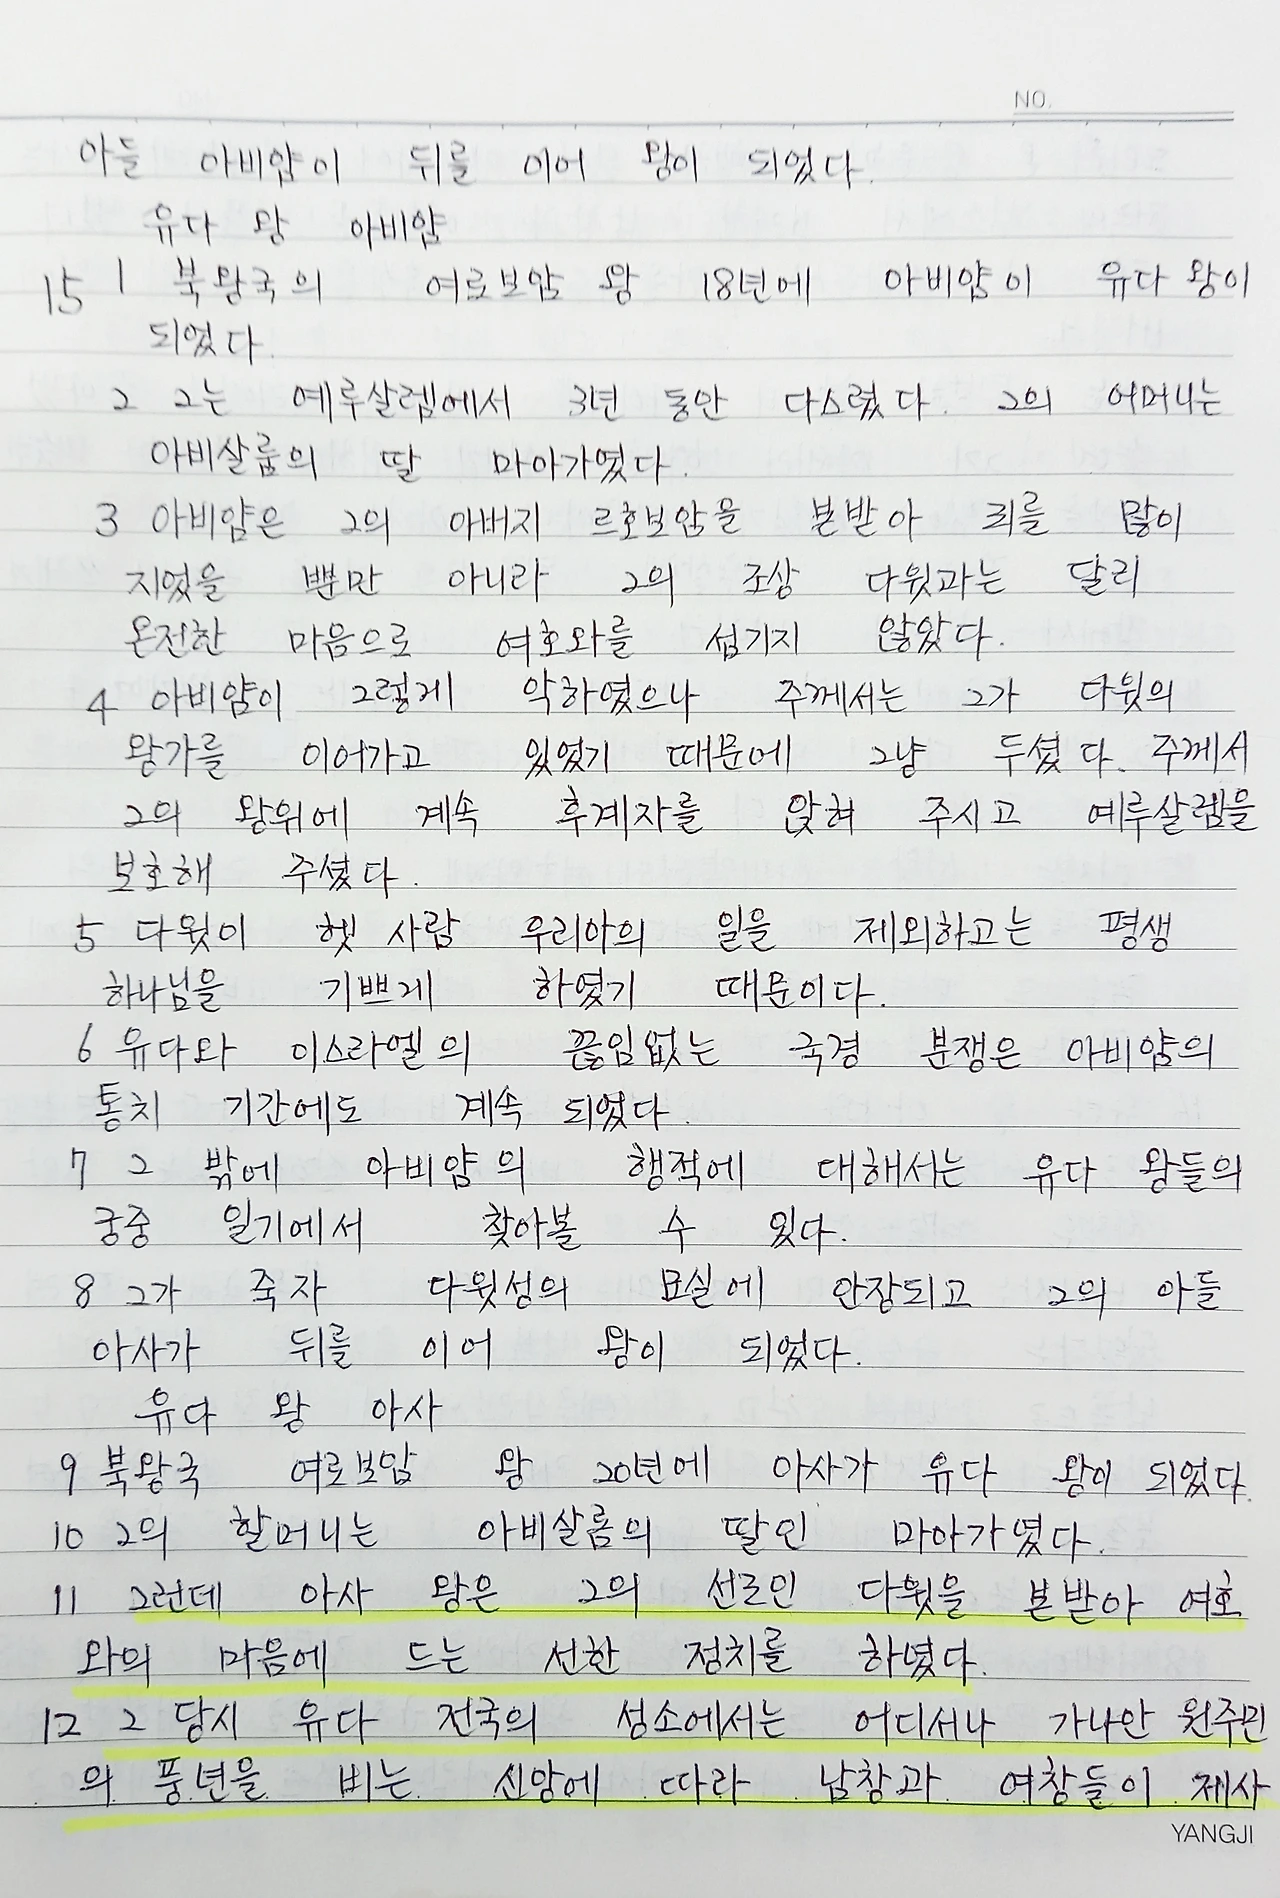 NO.
아들 아비얌이 뒤를 이어 왕이 되었다.
유다 왕 아비얌
15 1 북왕국의 여로보암 왕 18년에 아비얌이 유다 왕이
되었다.
2 그는 예루살렘에서 3년 동안 다스렸다. 그의 어머니는
아비살롬의 딸 마아가였다.
3 아비얌은 그의 아버지 르호보암을 본받아 죄를 많이
지었을 뿐만 아니라 그의 조상 다윗과는 달리
온전한 마음으로 여호와를 섬기지 않았다.
4 아비얌이 그렇게 악하였으나 주께서는 그가 다윗의
왕가를 이어가고 있었기 때문에 그냥 두셨다. 주께서
그의 왕위에 계속 후계자를 앉혀 주시고 예루살렘을
보호해 주셨다.
5 다윗이 헷 사람 우리아의 일을 제외하고는 평생
하나님을 기쁘게 하였기 때문이다.
6 유다와 이스라엘의 끊임없는 국경 분쟁은 아비얌의
통치 기간에도 계속 되었다.
7 그 밖에 아비얌의 행적에 대해서는 유다 왕들의
궁중 일기에서 찾아볼 수 있다.
8 그가 죽자 다윗성의 묘실에 안장되고 그의 아들
아사가 뒤를 이어 왕이 되었다.
유다 왕 아사
9 북왕국 여로보암 왕 20년에 아사가 유다 왕이 되었다.
10 그의 할머니는 아비살롬의 딸인 마아가였다.
11 그런데 아사 왕은 그의 선조인 다윗을 본받아 여호
와의 마음에 드는 선한 정치를 하였다.
12 그 당시 유다 전국의 성소에서는 어디서나 가나안 원주민
의 풍년을 비는 신앙에 따라 남창과 여창들이 제사
YANGJI